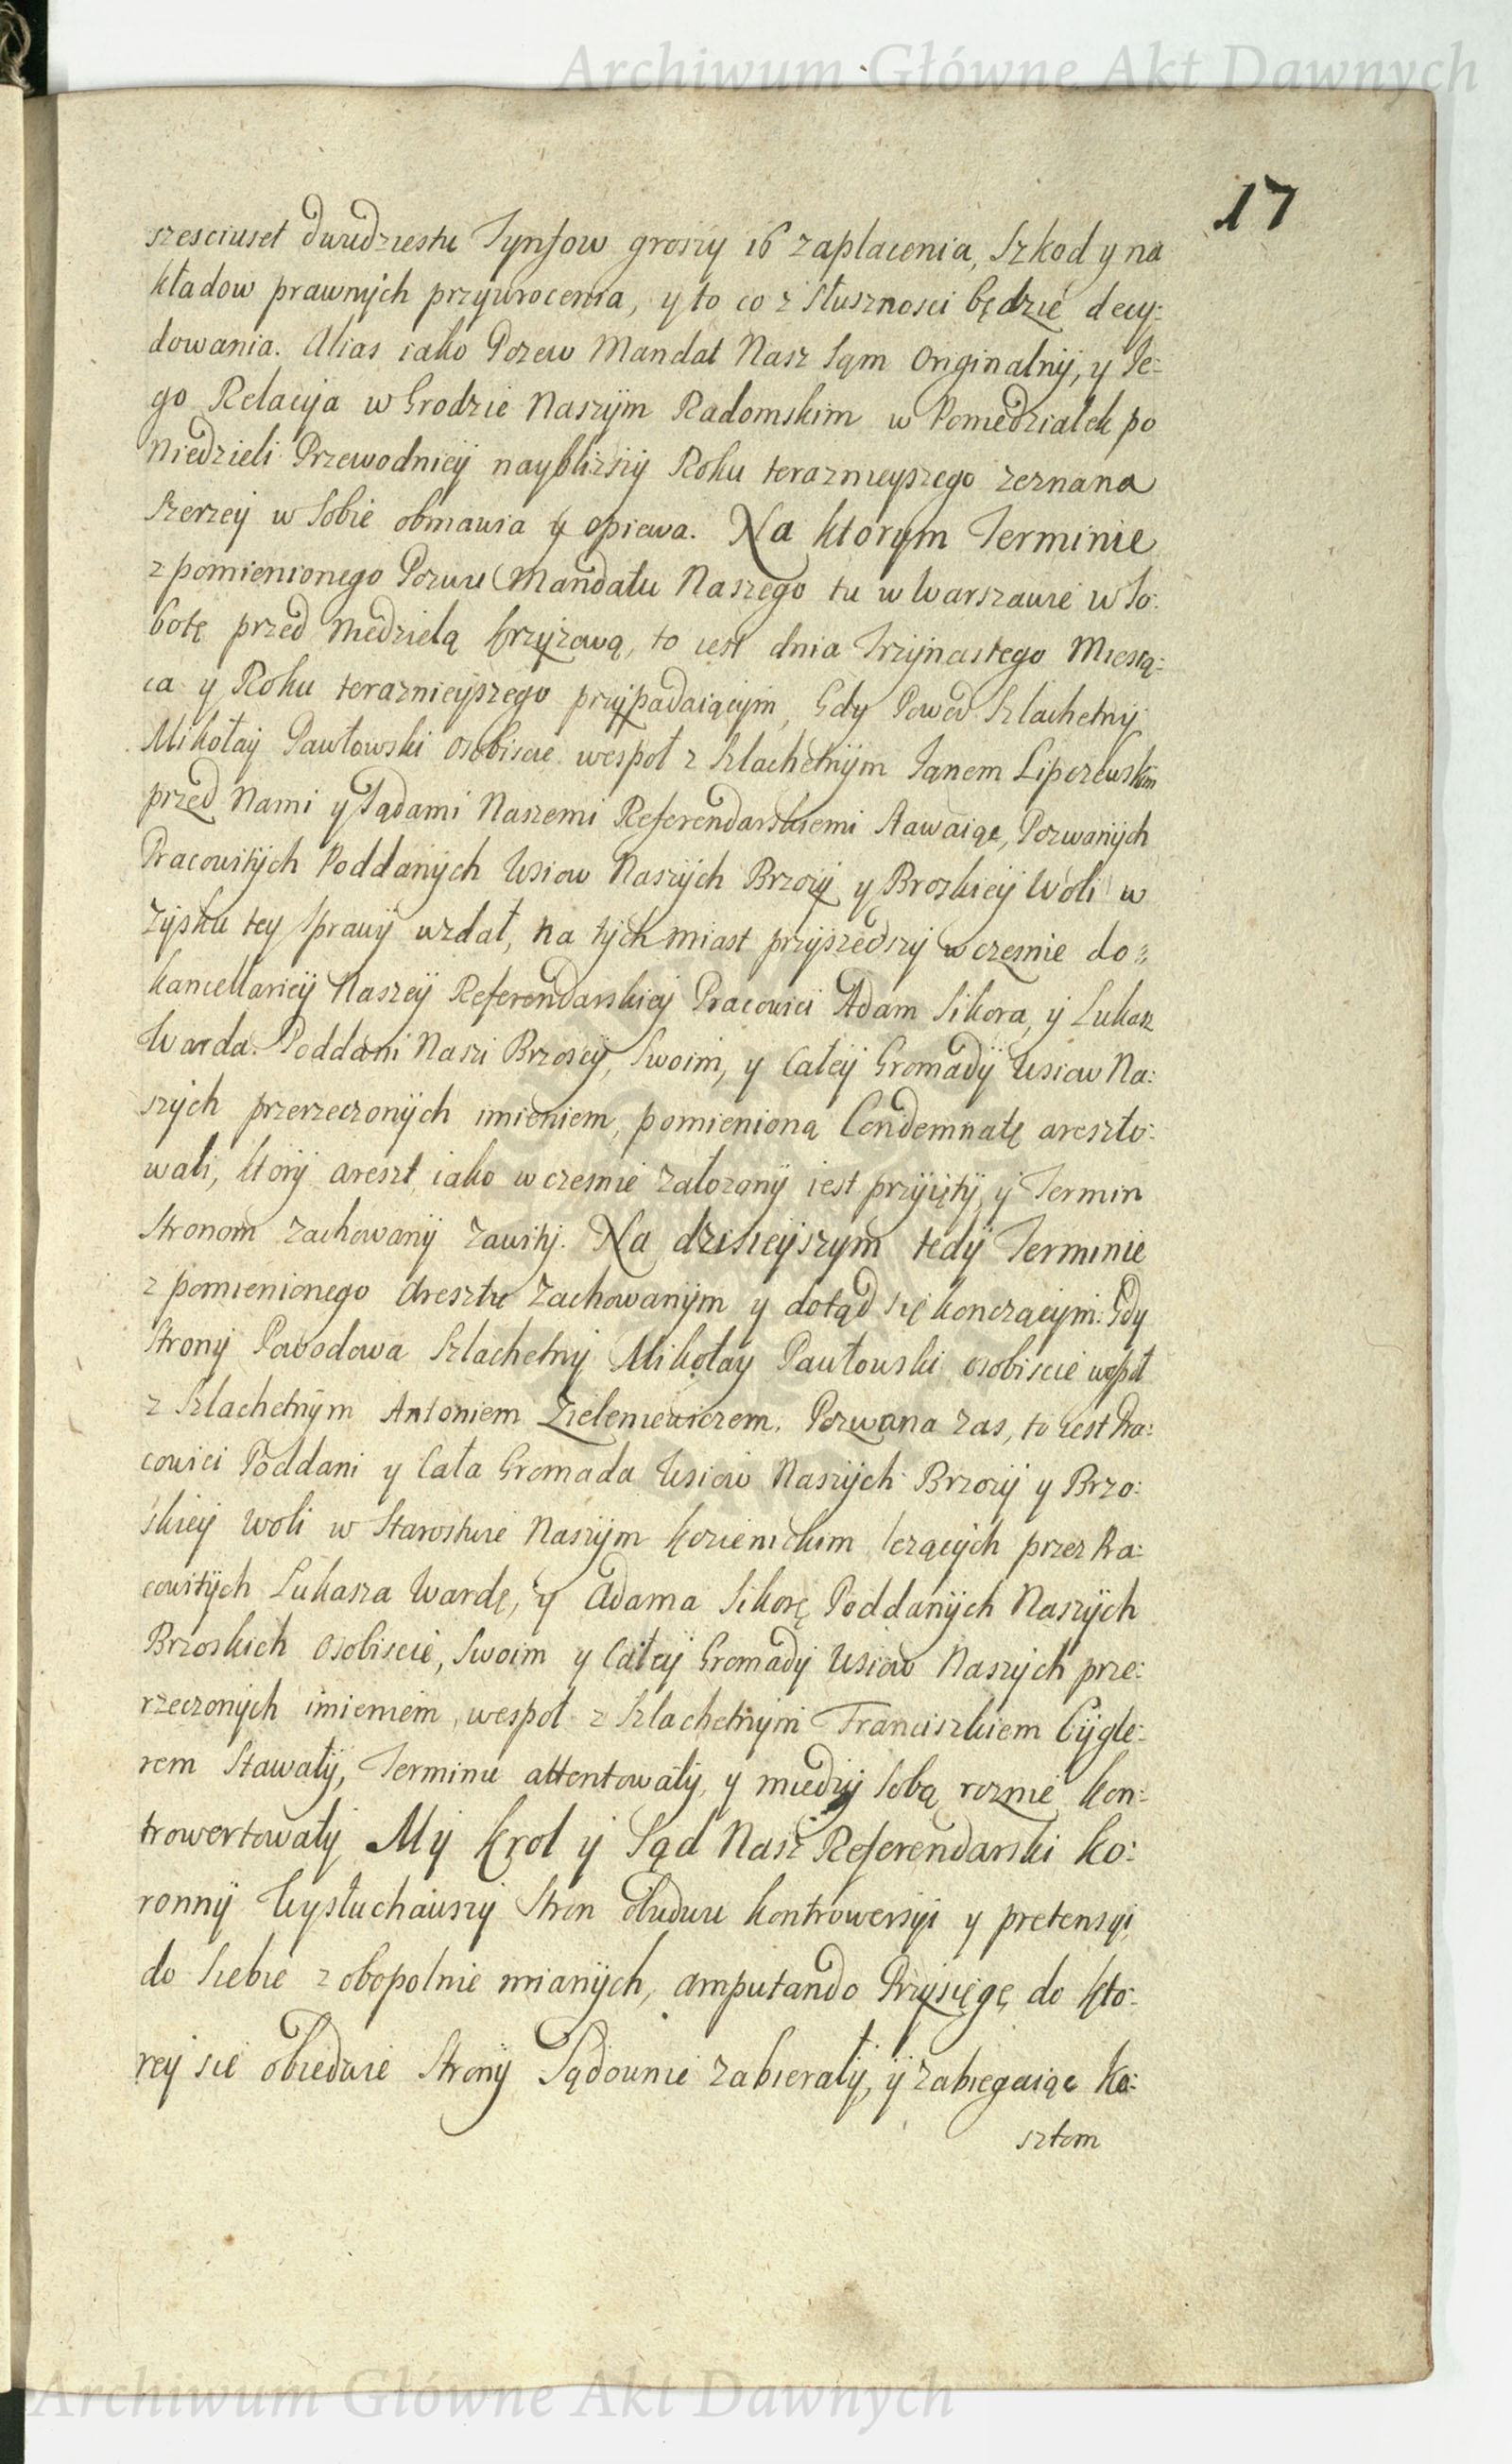 Archiwum Główne Akt Dawnych
17
szesciuset dwudziestu Tynfow groszy 16 zapłacenia, Szkod y na
kładow prawnych przywrocenia, y to co z słusznosci będzie decy:
dowania. Alias iako Pozew Mandat Nasz sąm Originalny, y Je:
go Relacyja w Grodzie Naszym Radomskim w Poniedziałek po
Niedzieli Przewodniey naybliższy Roku teraznieyszego zeznana
szerzey w sobie obmawia y opiewa. Na ktorym Terminie
z pomienionego Pozwu Mandatu Naszego tu w Warszawie w So:
botę przed Niedzielą krzyżową, to iest dnia Trzynastego Miesią:
ca y Roku teraznieyszego przypadaiącym, Gdy Powod Szlachetny
Mikołay Pawłowski osobiscie wespoł z Szlachetnym Janem Lipczewskim
przed Nami y Sądami Naszemi Referendarskiemi stawaiąc, Pozwanych
Pracowitych Poddanych Wsiow Naszych Brzozy y Brozkiey Woli w
zysku tey sprawy wzdał, na tychmiast przyszedszy wczesnie do:
kancellaryey Naszey Referendarskiey Pracowici Adam Sikora, y Łukasz
Warda. Poddani Nasi Brzoscy, Swoim, y Całey Gromady Wsiow Na:
szych przerzeczonych imieniem, pomienioną Condemnatę areszto:
wali, ktory areszt iako wczesnie załozony iest przyięty, y Termin
Stronom zachowany zawity. Na dzisieyszym tedy Terminie
z pomienionego Aresztu zachowanym y dotąd się konczącym: Gdy
Strony Powodowa Szlachetny Mikołay Pawłowski osobiscie wespoł
z Szlachetnym Antoniem Zieleniewiczem. Pozwana zas, to iest Pra:
cowici Poddani y Cała Gromada Wsiow Naszych Brzozy y Brzo:
skiey Woli w Starostwie Naszym kozienickim lezących przez Pra:
cowitych Łukasza Wardę, y Adama Sikorę Poddanych Naszych
Brzoskich osobiscie, Swoim y Całey Gromady Wsiow Naszych prze:
rzeczonych imieniem, wespoł z Szlachetnym Franciszkiem Cygle:
rem Stawały, Terminu attentowały, y miedzy sobą roznie kon:
trowertowały. My krol y Sąd Nasz Referendarski ko:
ronny Wysłuchawszy Stron obudwu kontrowersyi y pretensyi
do siebie zobopolnie mianych, amputando Przysięgę do kto:
rey sie obiedwie Strony Sądownie zabierały, y zabiegaiąc ko:
sztom
Archiwum Główne Akt Dawnych